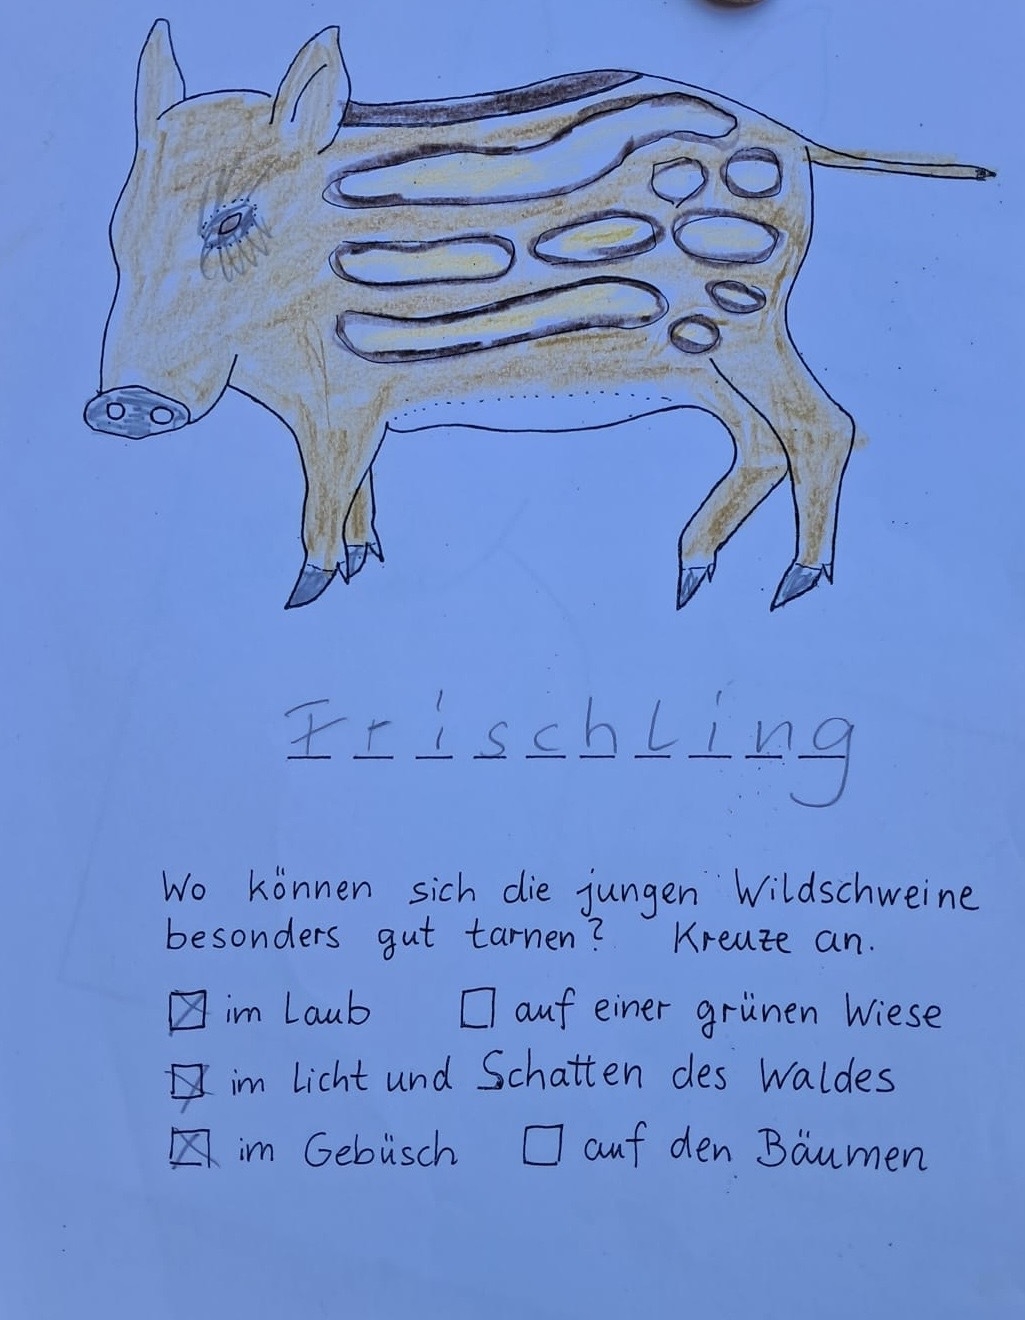 Frischling
Wo können sich die jungen Wildschweine
besonders gut tarnen? Kreuze an.
im Laub auf einer grünen Wiese
im Licht und Schatten des Waldes
im Gebüsch auf den Bäumen